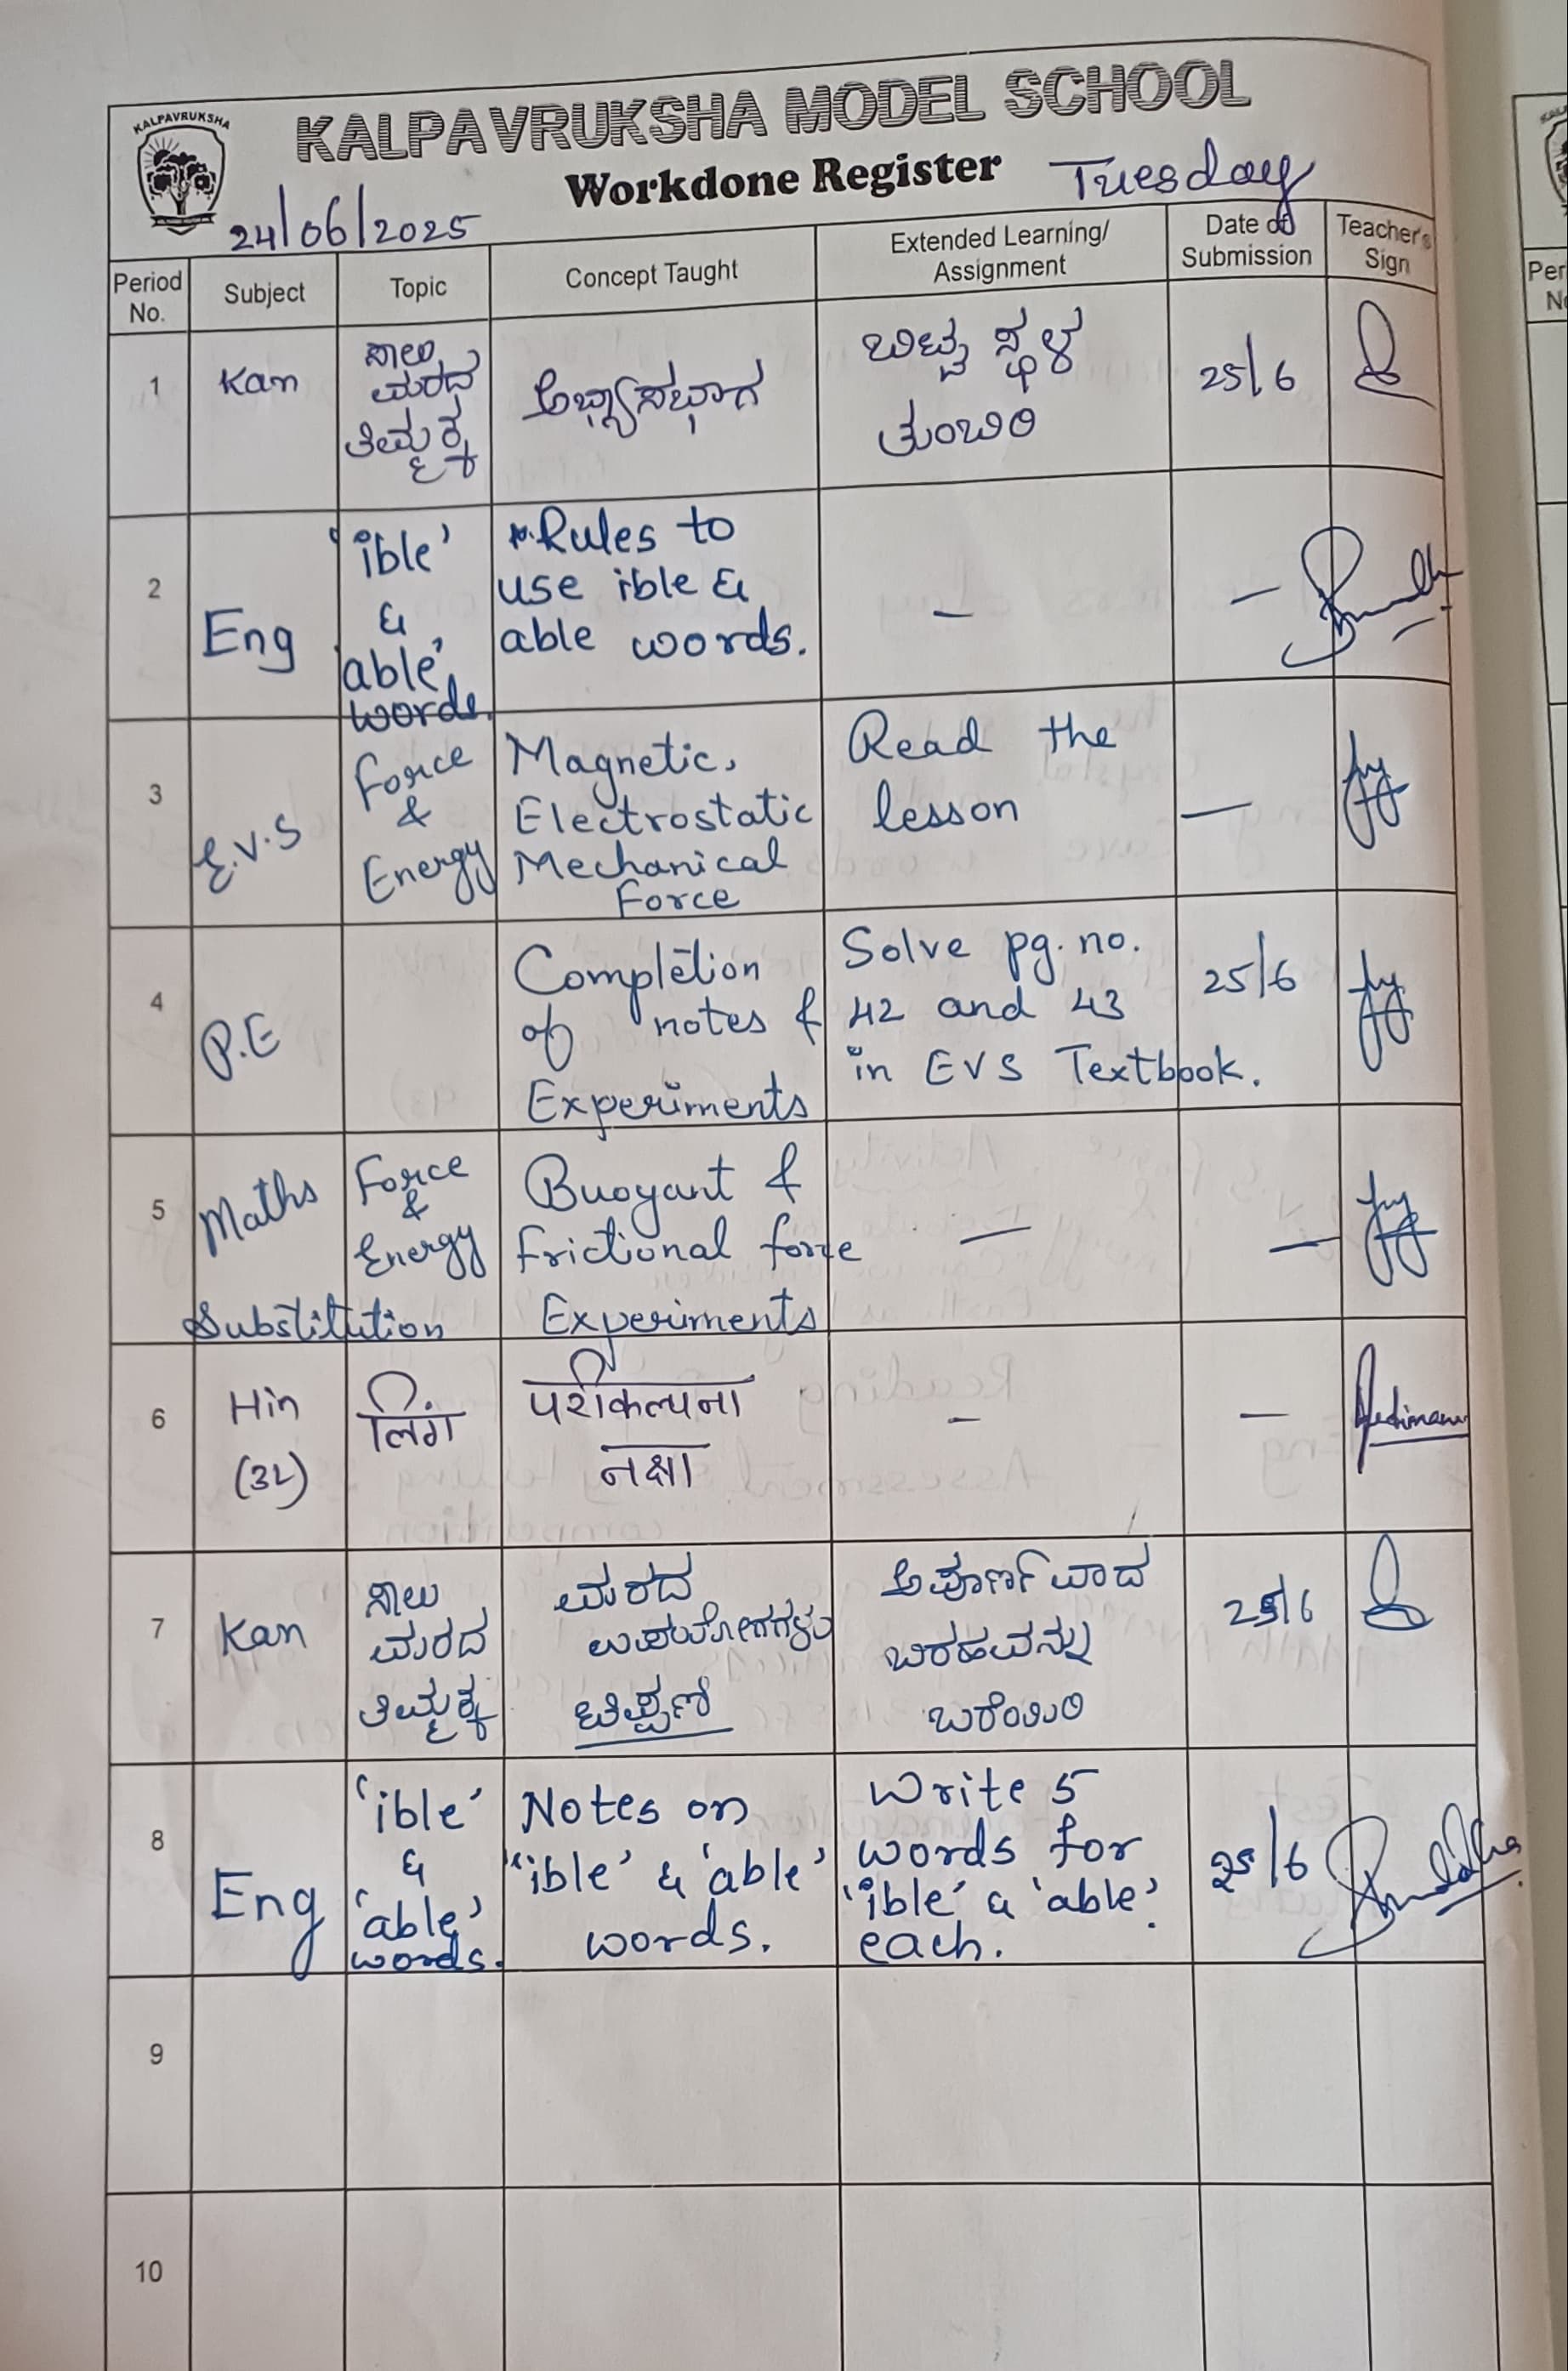 KALPAVRUKSHA
KALPAVRUKSHA MODEL SCHOOL
Workdone Register
Tuesday
24/06/2025
Period No.
Subject
Topic
Concept Taught
Extended Learning/ Assignment
Date of Submission
Teacher's Sign
1
Kan
ಸಾಲು
ಮರದ
ತಿಮ್ಮಕ್ಕ
ಅಭ್ಯಾಸಭಾಗ
ಬಿಟ್ಟ ಸ್ಥಳ
ತುಂಬಿರಿ
25/6
2
Eng
'ible'
&
able'
words.
Rules to
use ible &
able words.
-
-
3
E.V.S
Force
&
Energy
Magnetic,
Electrostatic
Mechanical
Force
Read the
lesson
-
4
P.E
Completion
of notes &
Experiments
Solve pg. no.
42 and 43
in EVS Textbook.
25/6
5
Maths
Substitution
Force
&
Energy
Buoyant &
Frictional force
Experiments
-
-
6
Hin
(3L)
लिंग
परीकल्पना
नक्षा
-
-
7
Kan
ಸಾಲು
ಮರದ
ತಿಮ್ಮಕ್ಕ
ಮರದ
ಉಪಯೋಗಗಳು
ಟಿಪ್ಪಣಿ
ಅಪೂರ್ಣವಾದ
ಬರಹವನ್ನು
ಬರೆಯಿರಿ
25/6
8
Eng
'ible'
&
'able'
words.
Notes on
'ible' & 'able'
words.
Write 5
words for
'ible' & 'able'
each.
25/6
9
10